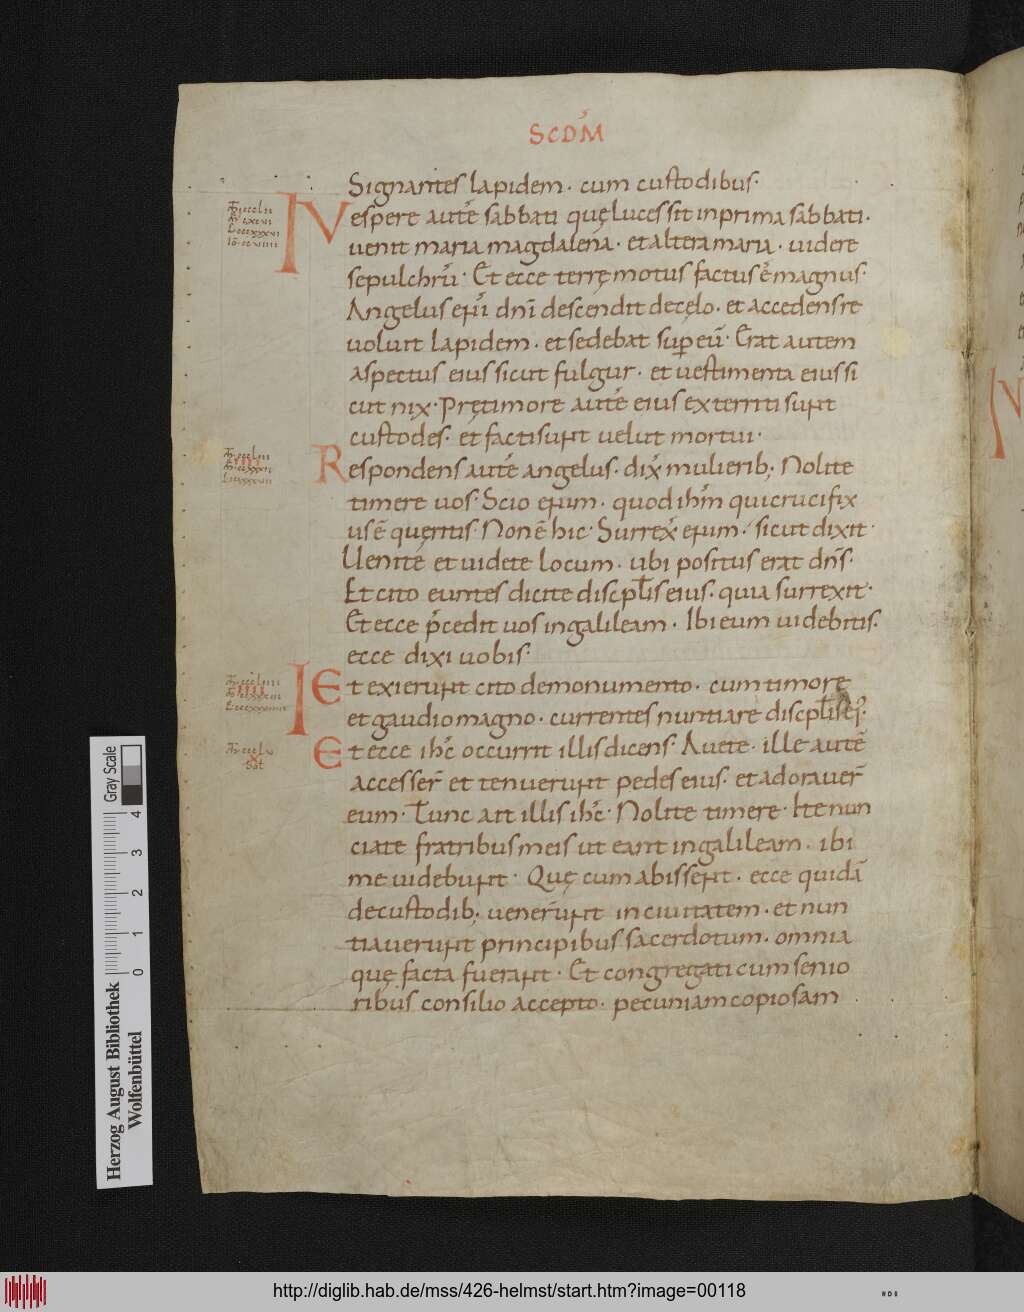 SCDM̄
Signantes lapidem · cum custodibus ·
Vespere autē sabbati quę lucessit in prima sabbati ·
uenit maria magdalena · et altera maria · uidere
sepulchrū · Et ecce terrę motus factus ē magnus ·
Angelus eni dn̄i descendit de cęlo · et accedens re
uoluit lapidem · et sedebat sup eū · Erat autem
aspectus eius sicut fulgur · et uestimenta eius si
cut nix · Prę timore autē eius exterriti sunt
custodes · et facti sunt uelut mortui ·
Respondens autē angelus · dix̄ mulierib; Nolite
timere uos · Scio enim · quod ih̄m qui crucifix
us ē quęritis · Non ē hic · Surrex̄ enim · sicut dixit ·
Uenite et uidete locum · ubi positus erat dn̄s ·
Et cito euntes dicite discpl̄is eius · quia surrexit ·
Et ecce p̄cedit uos in galileam · Ibi eum uidebitis ·
ecce dixi uobis ·
Et exierunt cito de monumento · cum timore
et gaudio magno · currentes nuntiare discpl̄is ei ·
Et ecce ih̄c occurrit illis dicens · Auete · ille autē
accesser̄ et tenuerunt pedes eius · et adorauer̄
eum · Tunc ait illis ih̄c · Nolite timere · Ite nun
ciate fratribus meis ut eant in galileam · ibi
me uidebunt · Quę cum abissent · ecce quidā
de custodib; uenerunt in ciuitatem · et nun
tiauerunt principibus sacerdotum · omnia
quę facta fuerant · Et congregati cum senio
ribus consilio accepto · pecuniam copiosam
Herzog August Bibliothek
Wolfenbüttel
0 1 2 3 4
Gray Scale
http://diglib.hab.de/mss/426-helmst/start.htm?image=00118